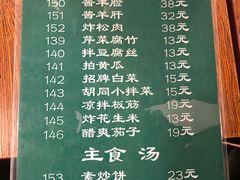 150 酱羊脸 38元
151 酱羊肝 32元
152 炸松肉 38元
139 芹菜腐竹 13元
140 拌豆腐丝 13元
141 拍黄瓜 13元
142 招牌白菜 15元
143 胡同小拌菜 15元
144 凉拌板筋 19元
145 炸花生米 13元
146 醋爽茄子 19元
主食 汤
153 素炒饼 23元